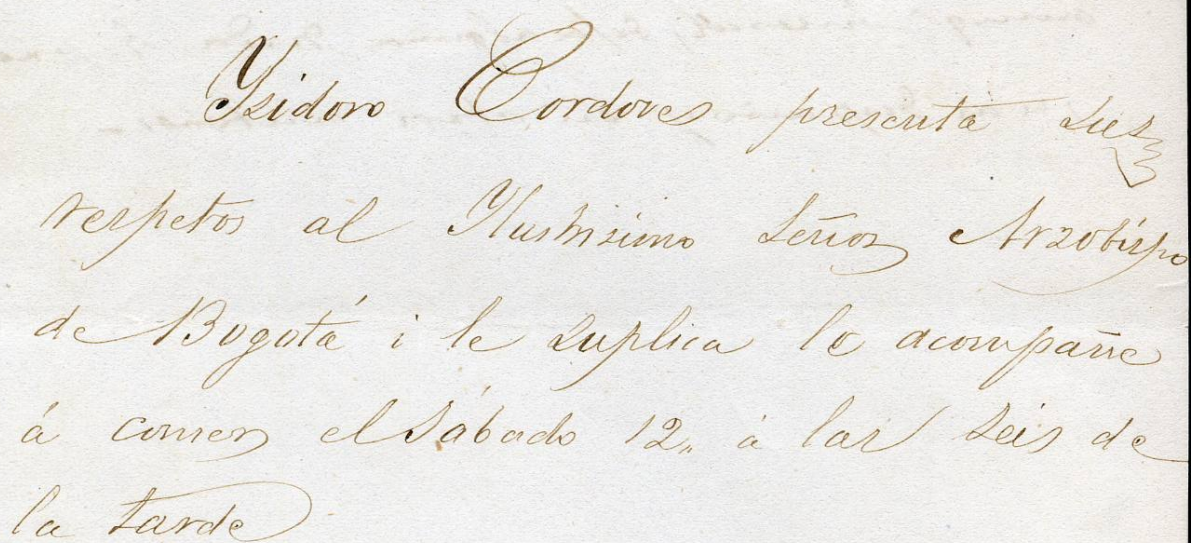 Ysidoro Cordoves presenta sus
respetos al Ylustrisimo Señor Arzobispo
de Bogotá i le suplica lo acompañe
á comer el Sábado 12,, á las seis de
la tarde